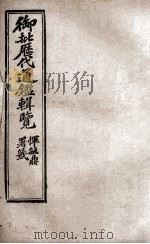 御批歷代通鑑輯覽
惲毓鼎
署籤
mtoou.info